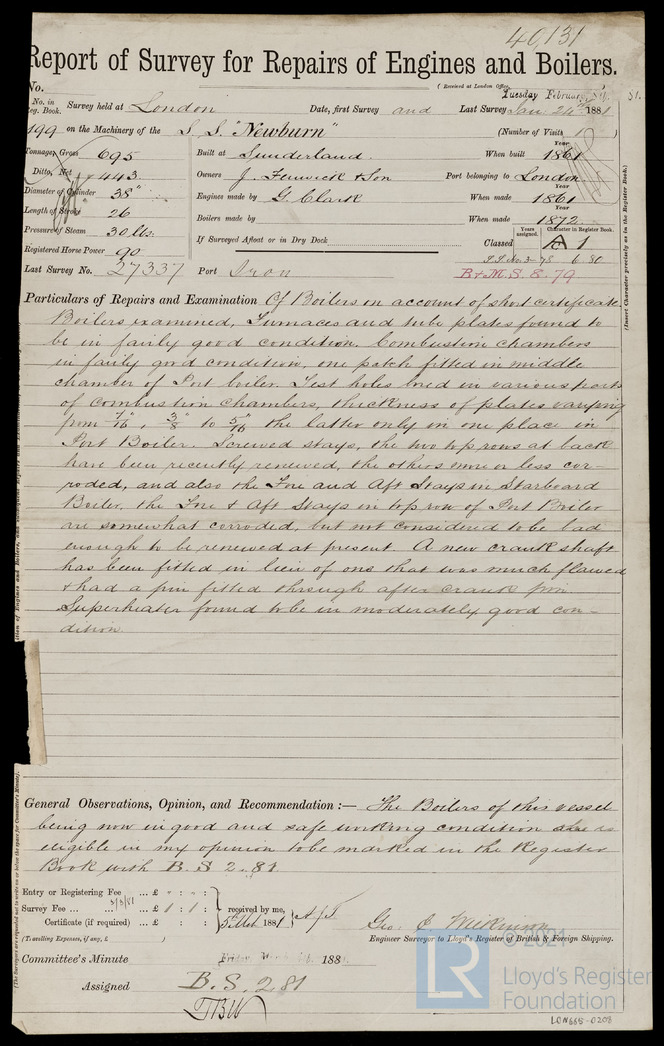 40131
Report of Survey for Repairs of Engines and Boilers.
No.
(Received at London Office
Tuesday February 81.
No. in Reg. Book. Survey held at London Date, first Survey and Last Survey Jan 24th 1881
199 on the Machinery of the S.S. "Newburn" (Number of Visits 1 )
Tonnage, Gross 695 Built at Sunderland. When built 1861
Ditto, Net 443 Owners J. Fenwick & Son Port belonging to London
Diameter of Cylinder 38" Engines made by G. Clark When made 1861
Length of Stroke 26 Boilers made by When made 1872
Pressure of Steam 30 lbs. If Surveyed Afloat or in Dry Dock Classed A 1
Years assigned. Character in Register Book.
Registered Horse Power 90 6 80
Last Survey No. 27337 Port Iron B&M.S. 8.79
(Insert Character precisely as in the Register Book.)
Particulars of Repairs and Examination Of Boilers on account of short certificate
Boilers examined, Furnaces and tube plates found to
be in fairly good condition. Combustion chambers
in fairly good condition, one patch fitted in middle
chamber of Port boiler. Test holes bored in various parts
of combustion chambers, thickness of plates varying
from 7/16", 3/8" to 5/16" the latter only in one place in
Port Boiler. Screwed stays, the two top rows at back
have been recently renewed, the others more or less cor-
roded, and also the Fore and Aft Stays in Starboard
Boiler, the Fore & Aft Stays in top row of Port Boiler
are somewhat corroded, but not considered to be bad
enough to be renewed at present. A new crank shaft
has been fitted in leir of one that was much flawed
& had a pin fitted through after crank pin.
Superheater found to be in moderately good con-
dition.
General Observations, Opinion, and Recommendation :— The Boilers of this vessel
being now in good and safe working condition she is
eligible in my opinion to be marked in the Register
Book with B.S 2.81
Entry or Registering Fee ... £ : :
3/3/81
Survey Fee ... £ 1 : 1 : received by me,
Certificate (if required) ... £ : : 1881
(Travelling Expenses, if any, £ )
Geo. C. Wilkinson
Engineer Surveyor to Lloyd's Register of British & Foreign Shipping.
Committee's Minute Friday 188
Assigned B.S. 2.81
© 2021
LR
Lloyd's Register
Foundation
LON665-0208